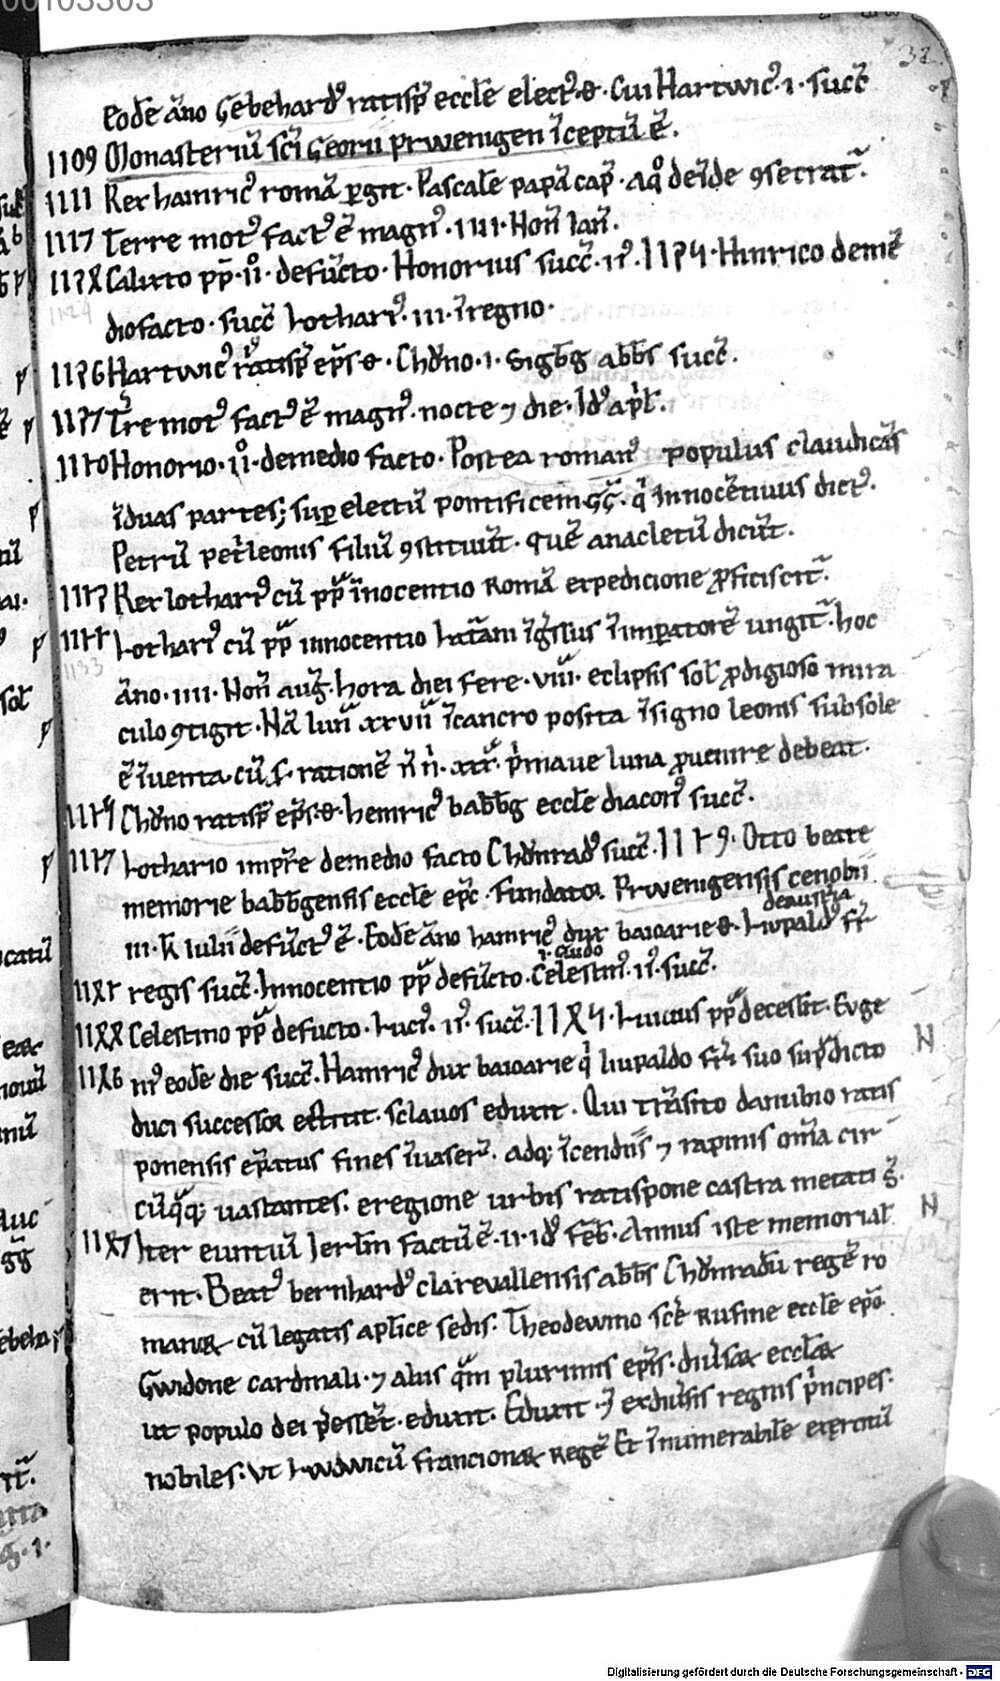 00103303
32
Eodē āno Gebehardꝰ ratisp̄ eccl̄e electꝰ ⁊. Cui Hartwicꝰ .i. succ̄
1109 Monasteriū sc̄i Georii prwenigen īceptū ē.
1111 Rex hainricꝰ romā ꝑgit. Pascalē papā cap̄. Aq̊ deīde ꝯsecrat̄.
1117 Terre motꝰ factꝰ ē magnꝰ .iiii. Non̄ Ian̄.
112X Calixto pp̄ .ii̊. defūcto. Honorius succ̄ .iiꝰ. 1125. Hinrico demē
1124
dio facto. succ̄ Lothariꝰ .iii. ī regno.
1126 Hartwicꝰ ratisp̄ ep̄s ⁊. Chōno .i. sigb̄g abb̄s succ̄.
1127 T̄re motꝰ factꝰ ē magnꝰ. nocte ⁊ die. Idꝰ ap̄l.
1130 Honorio .ii̊. de medio facto. Postea romanꝰ populus claudicās
ī duas partes; suꝑ electū pontificem Gḡ. q̇ Innocētiuus dictꝰ.
Petrū pet̄leonis filiū ꝯstituūt. quē anacletū dicūt.
1132 Rex lothariꝰ cū pp̄ īnocentio Romā expedicione ꝓficiscit̄.
1133 Lothariꝰ cū pp̄ innocentio Lat̄am īgr̄ssus ī imꝑatorē ungit̄. hoc
1133
āno .iiii. Non̄ auḡ. hora diei fere .viii. eclipsis sol̄ ꝓdigioso mira
culo ꝯtigit. Nā lun̄ xxvii ī cancro posita ī signo leonis sub sole
ē īuenta. cū s. rationē n̄ n̄. xxx. p̄ma ue luna ꝓuenire debeat.
1135 Chōno ratisp̄ ep̄s. ⁊. heinricꝰ babb̄g eccl̄e diaconꝰ succ̄.
1137 Lothario imp̄re de medio facto Chōnradꝰ succ̄. 1139. Otto beate
memorie babb̄gensis eccl̄e ep̄c. fundator Prwenigensis cenobii
de austria
iii. k̄ Iulii defūctꝰ ē. Eodē āno hainricꝰ dux baioarie ⁊. Liupaldꝰ fr̄
.i. Guido
11X3 regis succ̄. Innocentio pp̄ defūcto. Celestinꝰ .iiꝰ. succ̄.
11XX Celestino pp̄ defūcto. Luciꝰ .iiꝰ. succ̄. 11X5. Lucius pp̄ decessit. Euge
N
11X6 niꝰ eodē die succ̄. Hainricꝰ dux baioarie q̇ liupaldo fr̄i suo sup̄dicto
duci successor extitit. sclauos eduxit. Qui trāsito danubio ratis
ponensis ep̄atus fines īuaserꝰ. adq; īcendiis ⁊ rapinis om̄a cir
cūq̄q; uastantes. e regione urbis ratispone castra metati s̄.
N
11X7 Iter euntiū Ierl̄m factū ē .ii. idꝰ feb̄. Annus iste memorial̄
erit. Beatꝰ bernhardꝰ clarevallensis abb̄s Chōnradū regē ro
manoꝝ cū legatis apl̄ice sedis. Theodewino sc̄e Rufine eccl̄e ep̄o
Gwidone cardinali. ⁊ aliis q̄m plurimis ep̄is. diūsaꝝ eccl̄iaꝝ
ut populo dei p̄essēt. eduxit. Eduxit ⁊ ex diūsis regnis p̄ncipes.
nobiles. Ut Lvdwicū francionaꝝ Regē Et īnumerabile exercitū
Digitalisierung gefördert durch die Deutsche Forschungsgemeinschaft - DFG